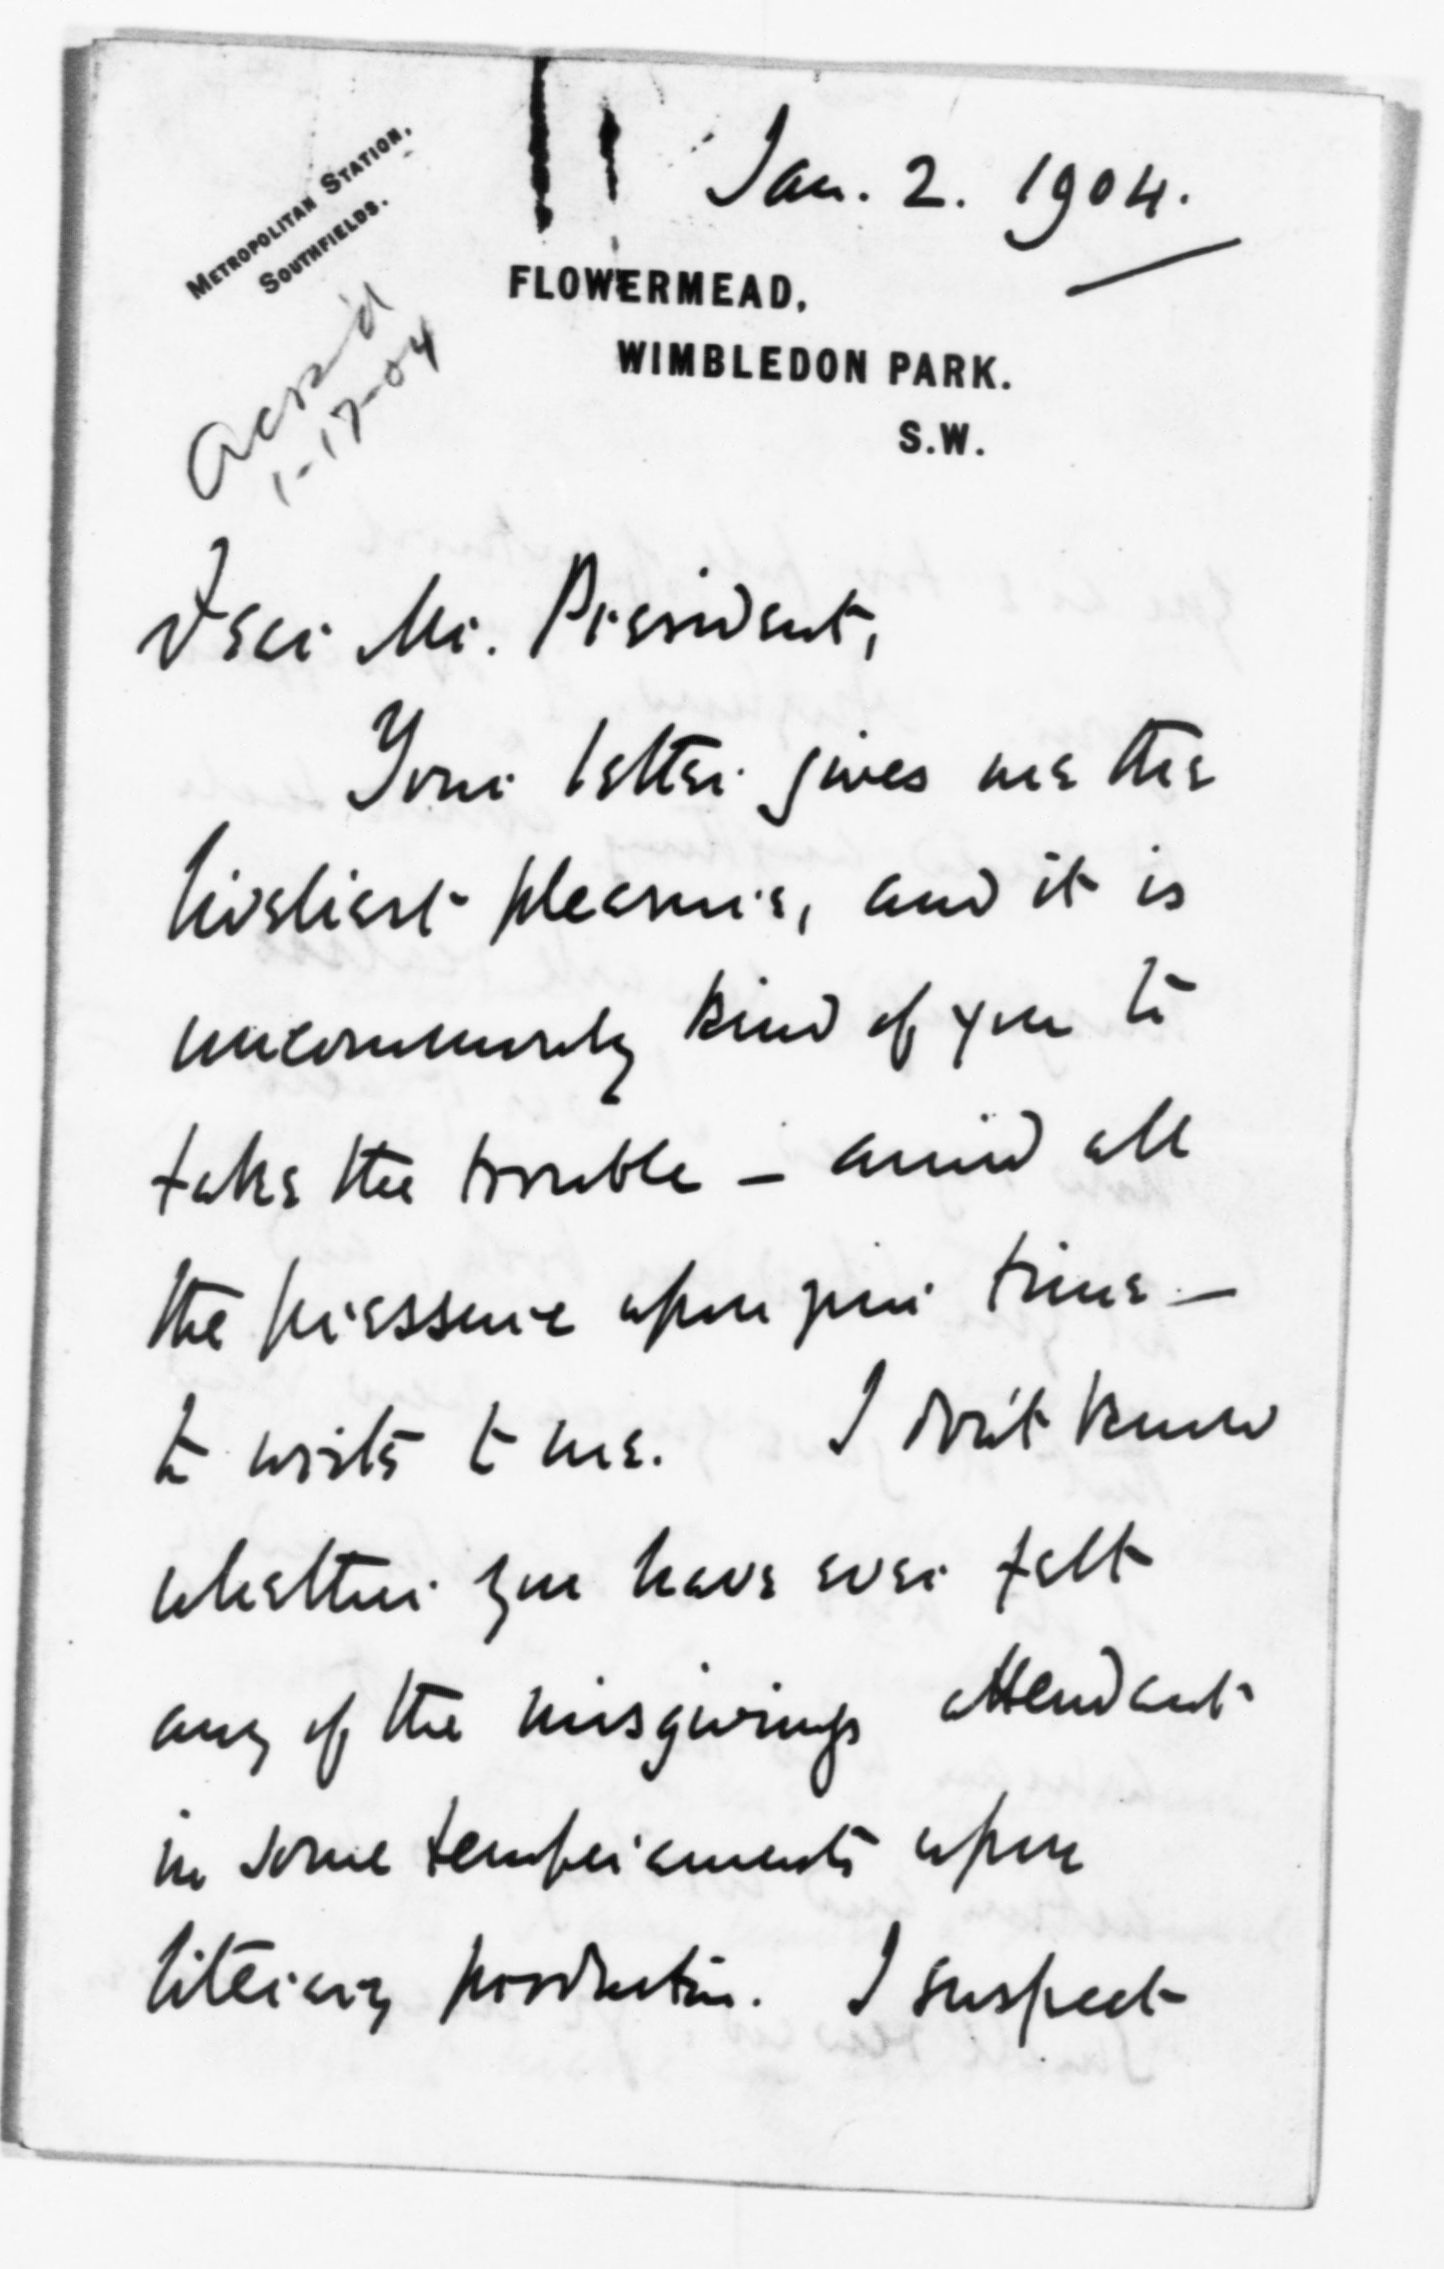 Jan. 2. 1904.
METROPOLITAN STATION,
SOUTHFIELDS.
FLOWERMEAD,
WIMBLEDON PARK.
S.W.
Ack'd
1-17-04
Dear Mr. President,
Your letter gives me the
liveliest pleasure, and it is
uncommonly kind of you to
take the trouble – amid all
the pressure upon your time –
to write to me. I don't know
whether you have ever felt
any of the misgivings attendant
in some temperaments upon
literary production. I suspect